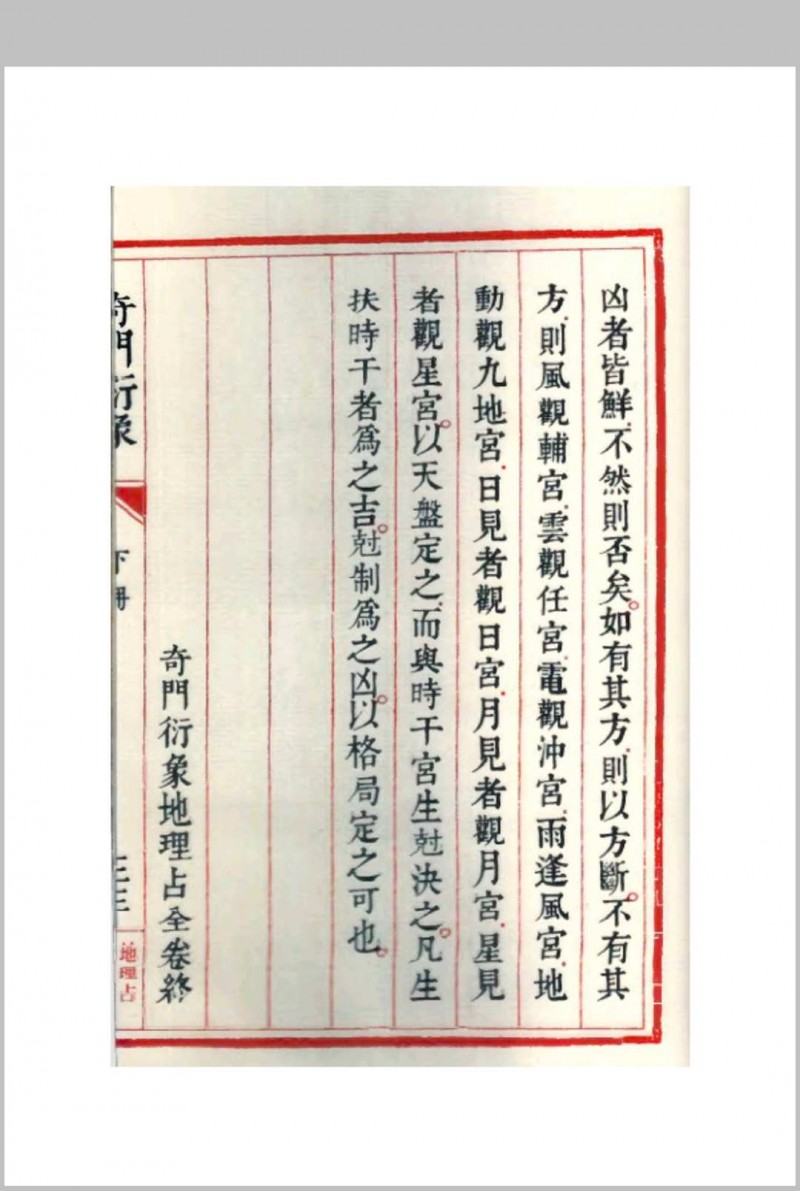 凶者皆鮮.不然則否矣。如有其方.則以方斷。不有其
方.則風觀輔宮.雲觀任宮.電觀沖宮.雨逢風宮.地
動觀九地宮.日見者觀日宮.月見者觀月宮.星見
者觀星宮。以天盤定之.而與時干宮生尅決之。凡生
扶時干者爲之吉。尅制爲之凶。以格局定之可也。
奇門衍象地理占全卷終
奇門衍象
下冊
地理占